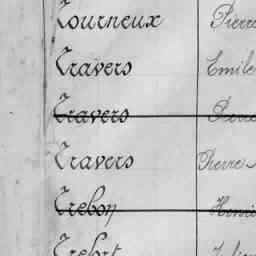 Tourneux Pierre
Travers Emile
Travers Pierre
Travers Pierre
Trebon Henri